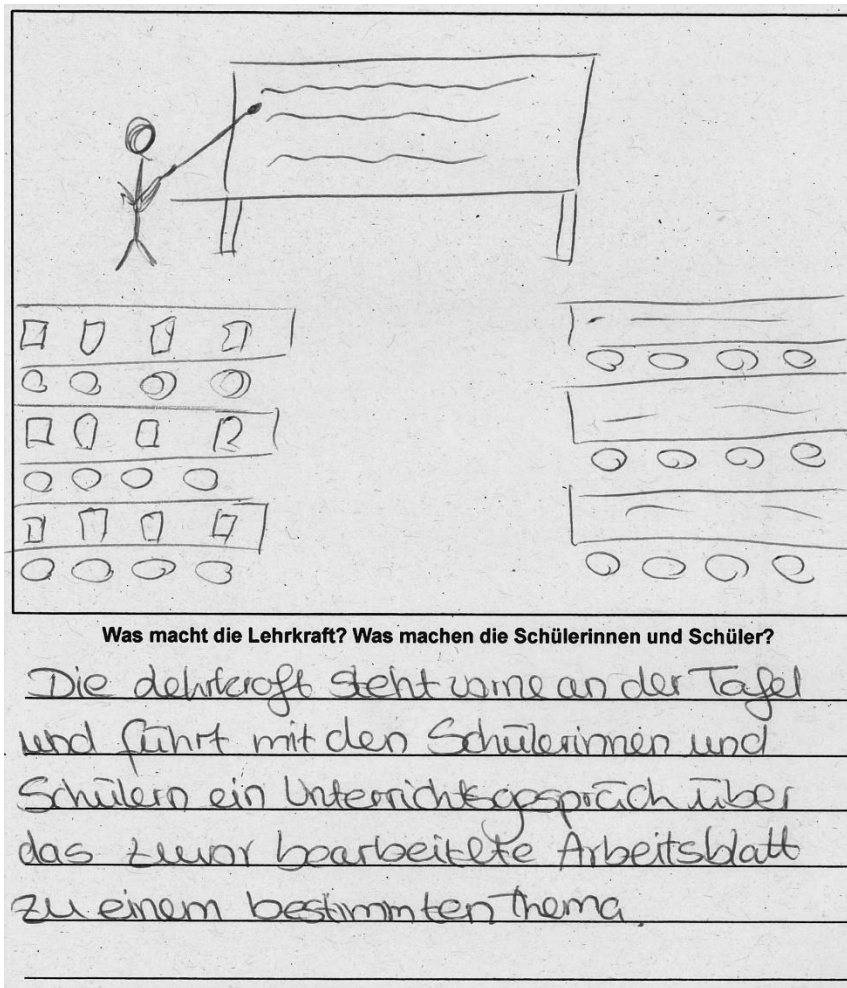 Was macht die Lehrkraft? Was machen die Schülerinnen und Schüler?
Die Lehrkraft steht vorne an der Tafel
und führt mit den Schülerinnen und
Schülern ein Unterrichtsgespräch über
das zuvor bearbeitete Arbeitsblatt
zu einem bestimmten Thema.